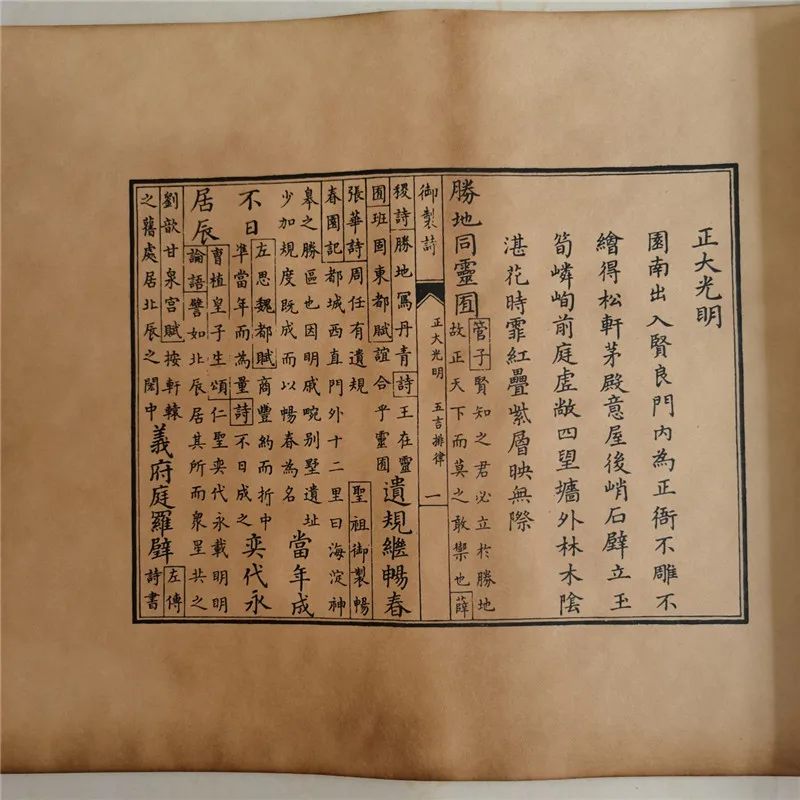 正大光明
園南出入賢良門內為正衙不雕不
繪得松軒茅殿意屋後峭石壁立玉
筍嶙峋前庭虛敞四望墻外林木陰
湛花時霏紅疊紫層映無際
勝地同靈囿
管子賢知之君必立於勝地
故正天下而莫之敢禦也薛
御製詩 正大光明 五言排律 一
稷詩勝地寫丹青詩王在靈
囿班固東都賦誼合乎靈囿
遺規繼暢春
張華詩周任有遺規 聖祖御製暢
春園記都城西直門外十二里曰海淀神
臯之勝區也因明戚畹別墅遺址
少加規度既成而以暢春為名
當年成
不日
左思魏都賦商豐約而折中
準當年而為量詩不日成之
奕代永
居辰
曹植皇子生頌仁聖奕代永載明明
論語譬如北辰居其所而眾星共之
劉歆甘泉宮賦按軒轅
之舊處居北辰之閎中
義府庭羅壁
左傳
詩書